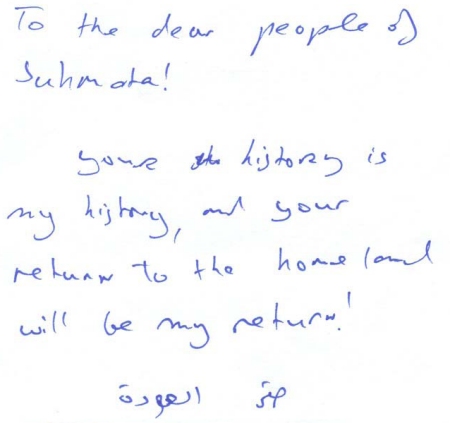 To the dear people of
Suhmata!
your history is
my history, and your
return to the homeland
will be my return!
حق العودة